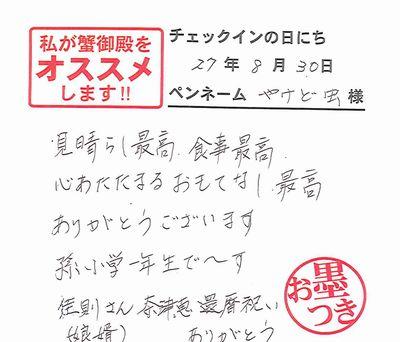 私が蟹御殿を
オススメ
します!!
チェックインの日にち
27年8月30日
ペンネーム やけど虫 様
見晴らし最高 食事最高
心あたたまるおもてなし最高
ありがとうございます
孫小学一年生で〜す
佳則さん 奈津恵 還暦祝い
(娘婿) ありがとう
お墨つき